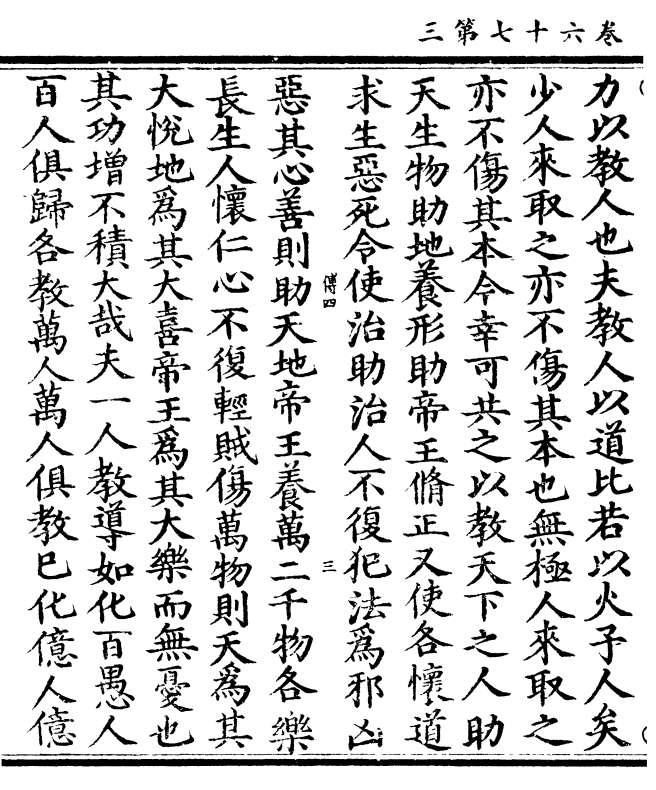 卷六十七第三
力以教人也夫教人以道比若以火予人矣
少人來取之亦不傷其本也無極人來取之
亦不傷其本今幸可共之以教天下之人助
天生物助地養形助帝王脩正又使各懷道
求生惡死令使治助治人不復犯法爲邪凶
傅四
三
惡其心善則助天地帝王養萬二千物各樂
長生人懷仁心不復輕賊傷萬物則天爲其
大悅地爲其大喜帝王爲其大樂而無憂也
其功增不積大哉夫一人教導如化百愚人
百人俱歸各教萬人萬人俱教已化億人億